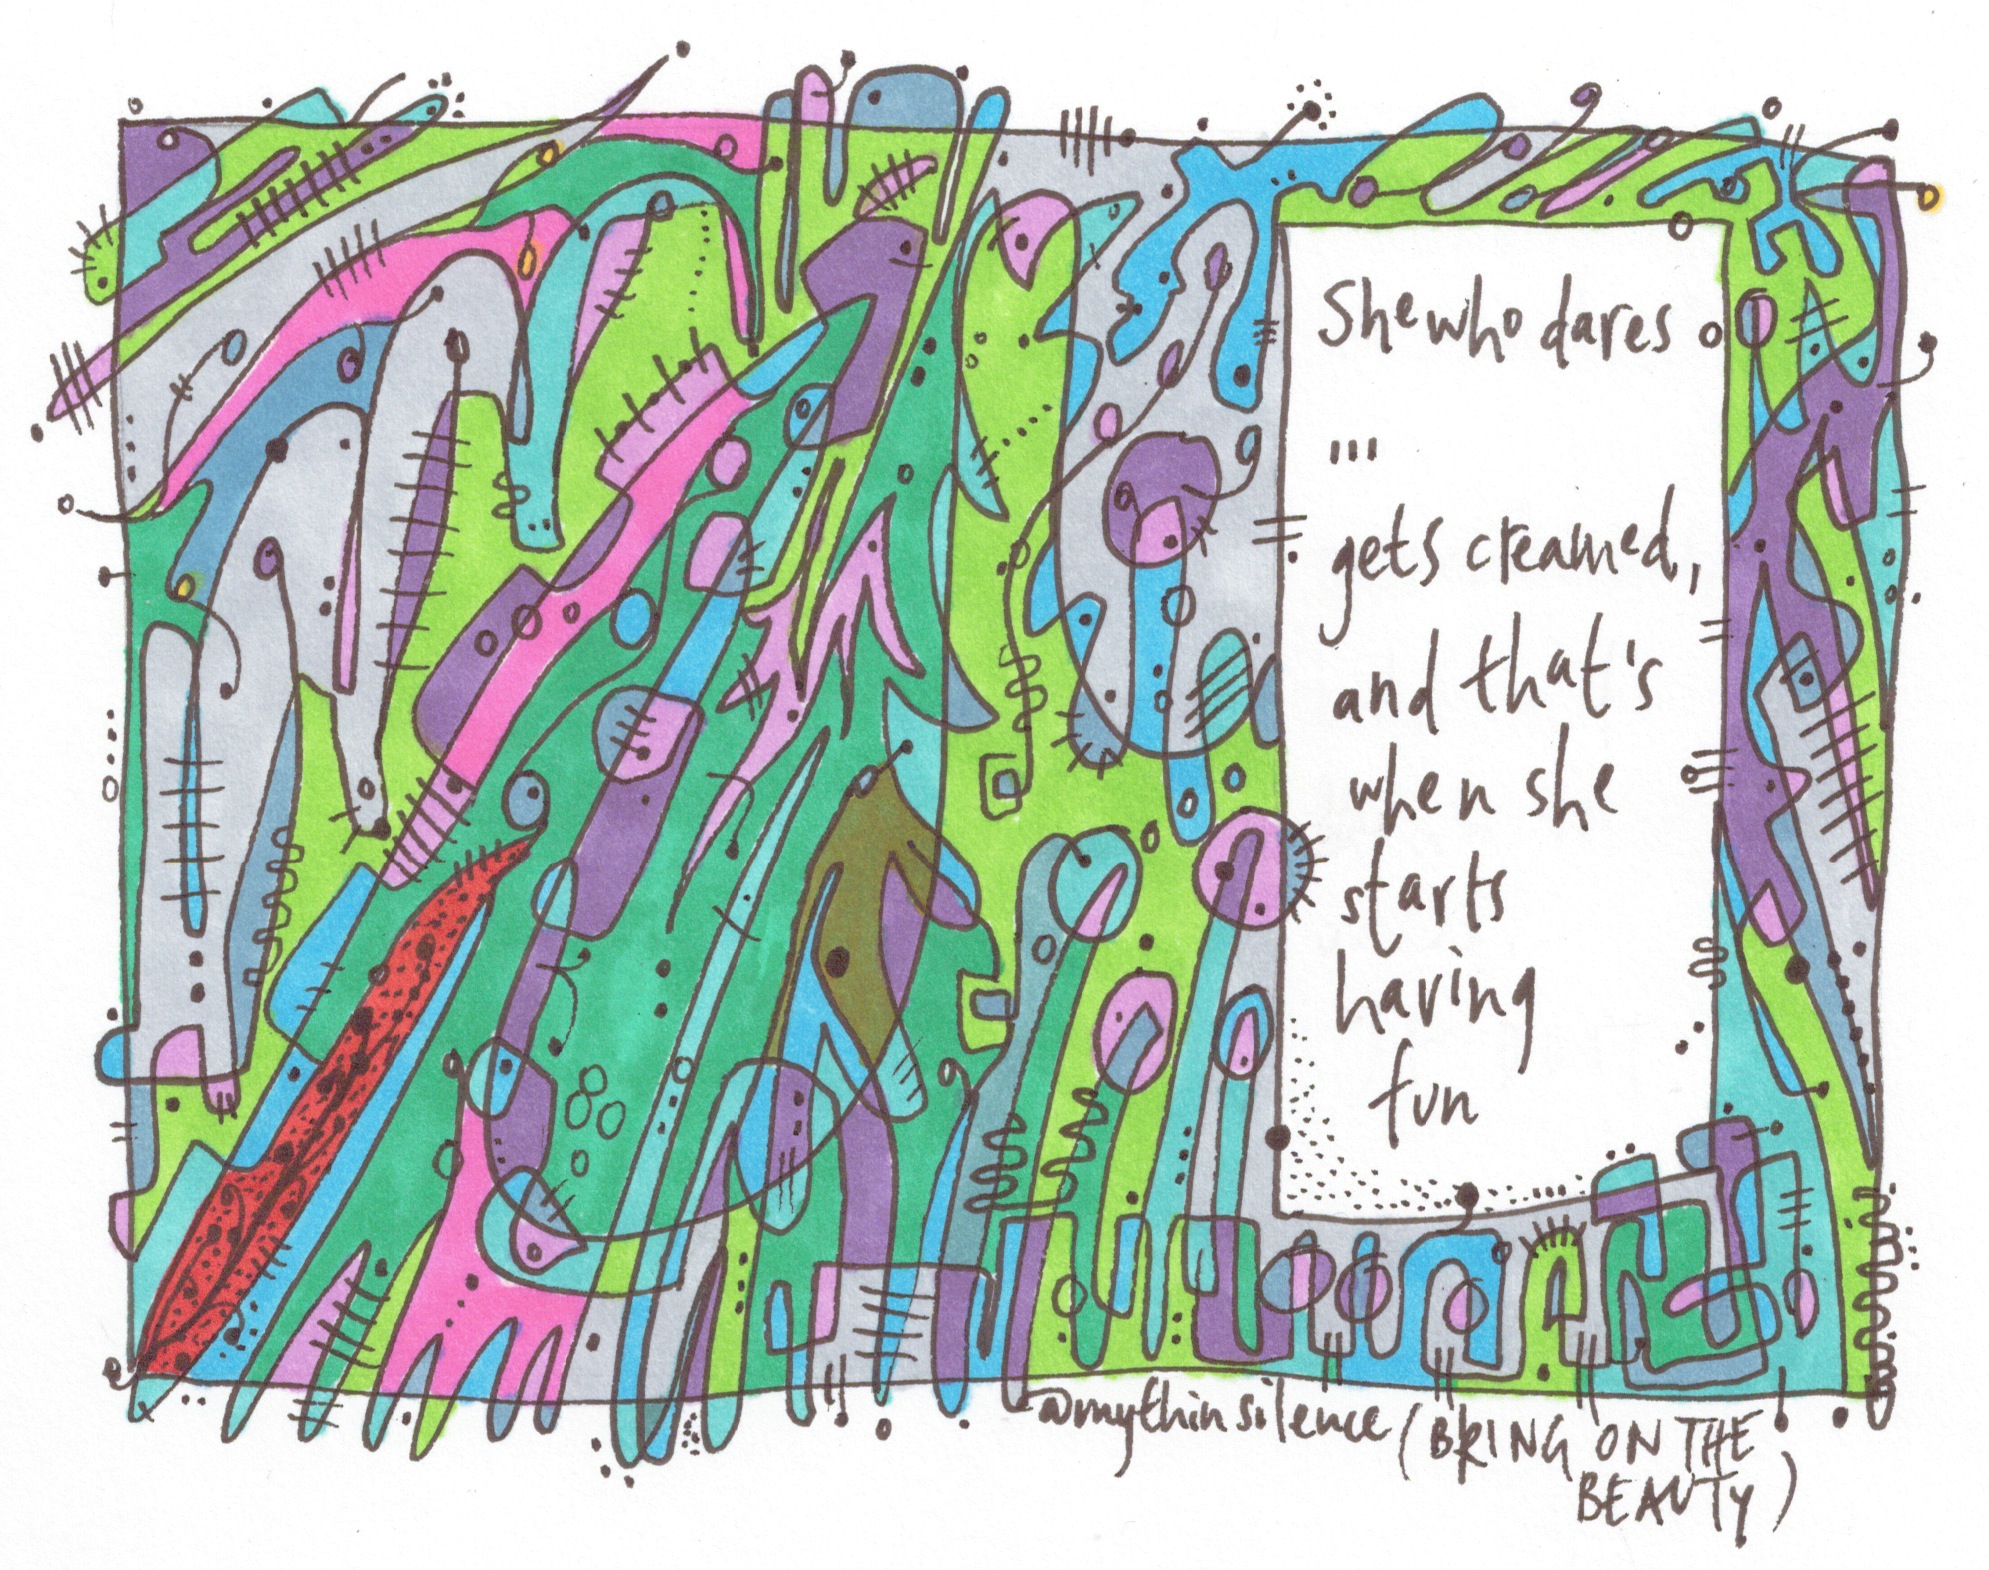 She who dares
...
gets creamed,
and that's
when she
starts
having
fun
@mythinsilence (BRING ON THE
BEAUTY)